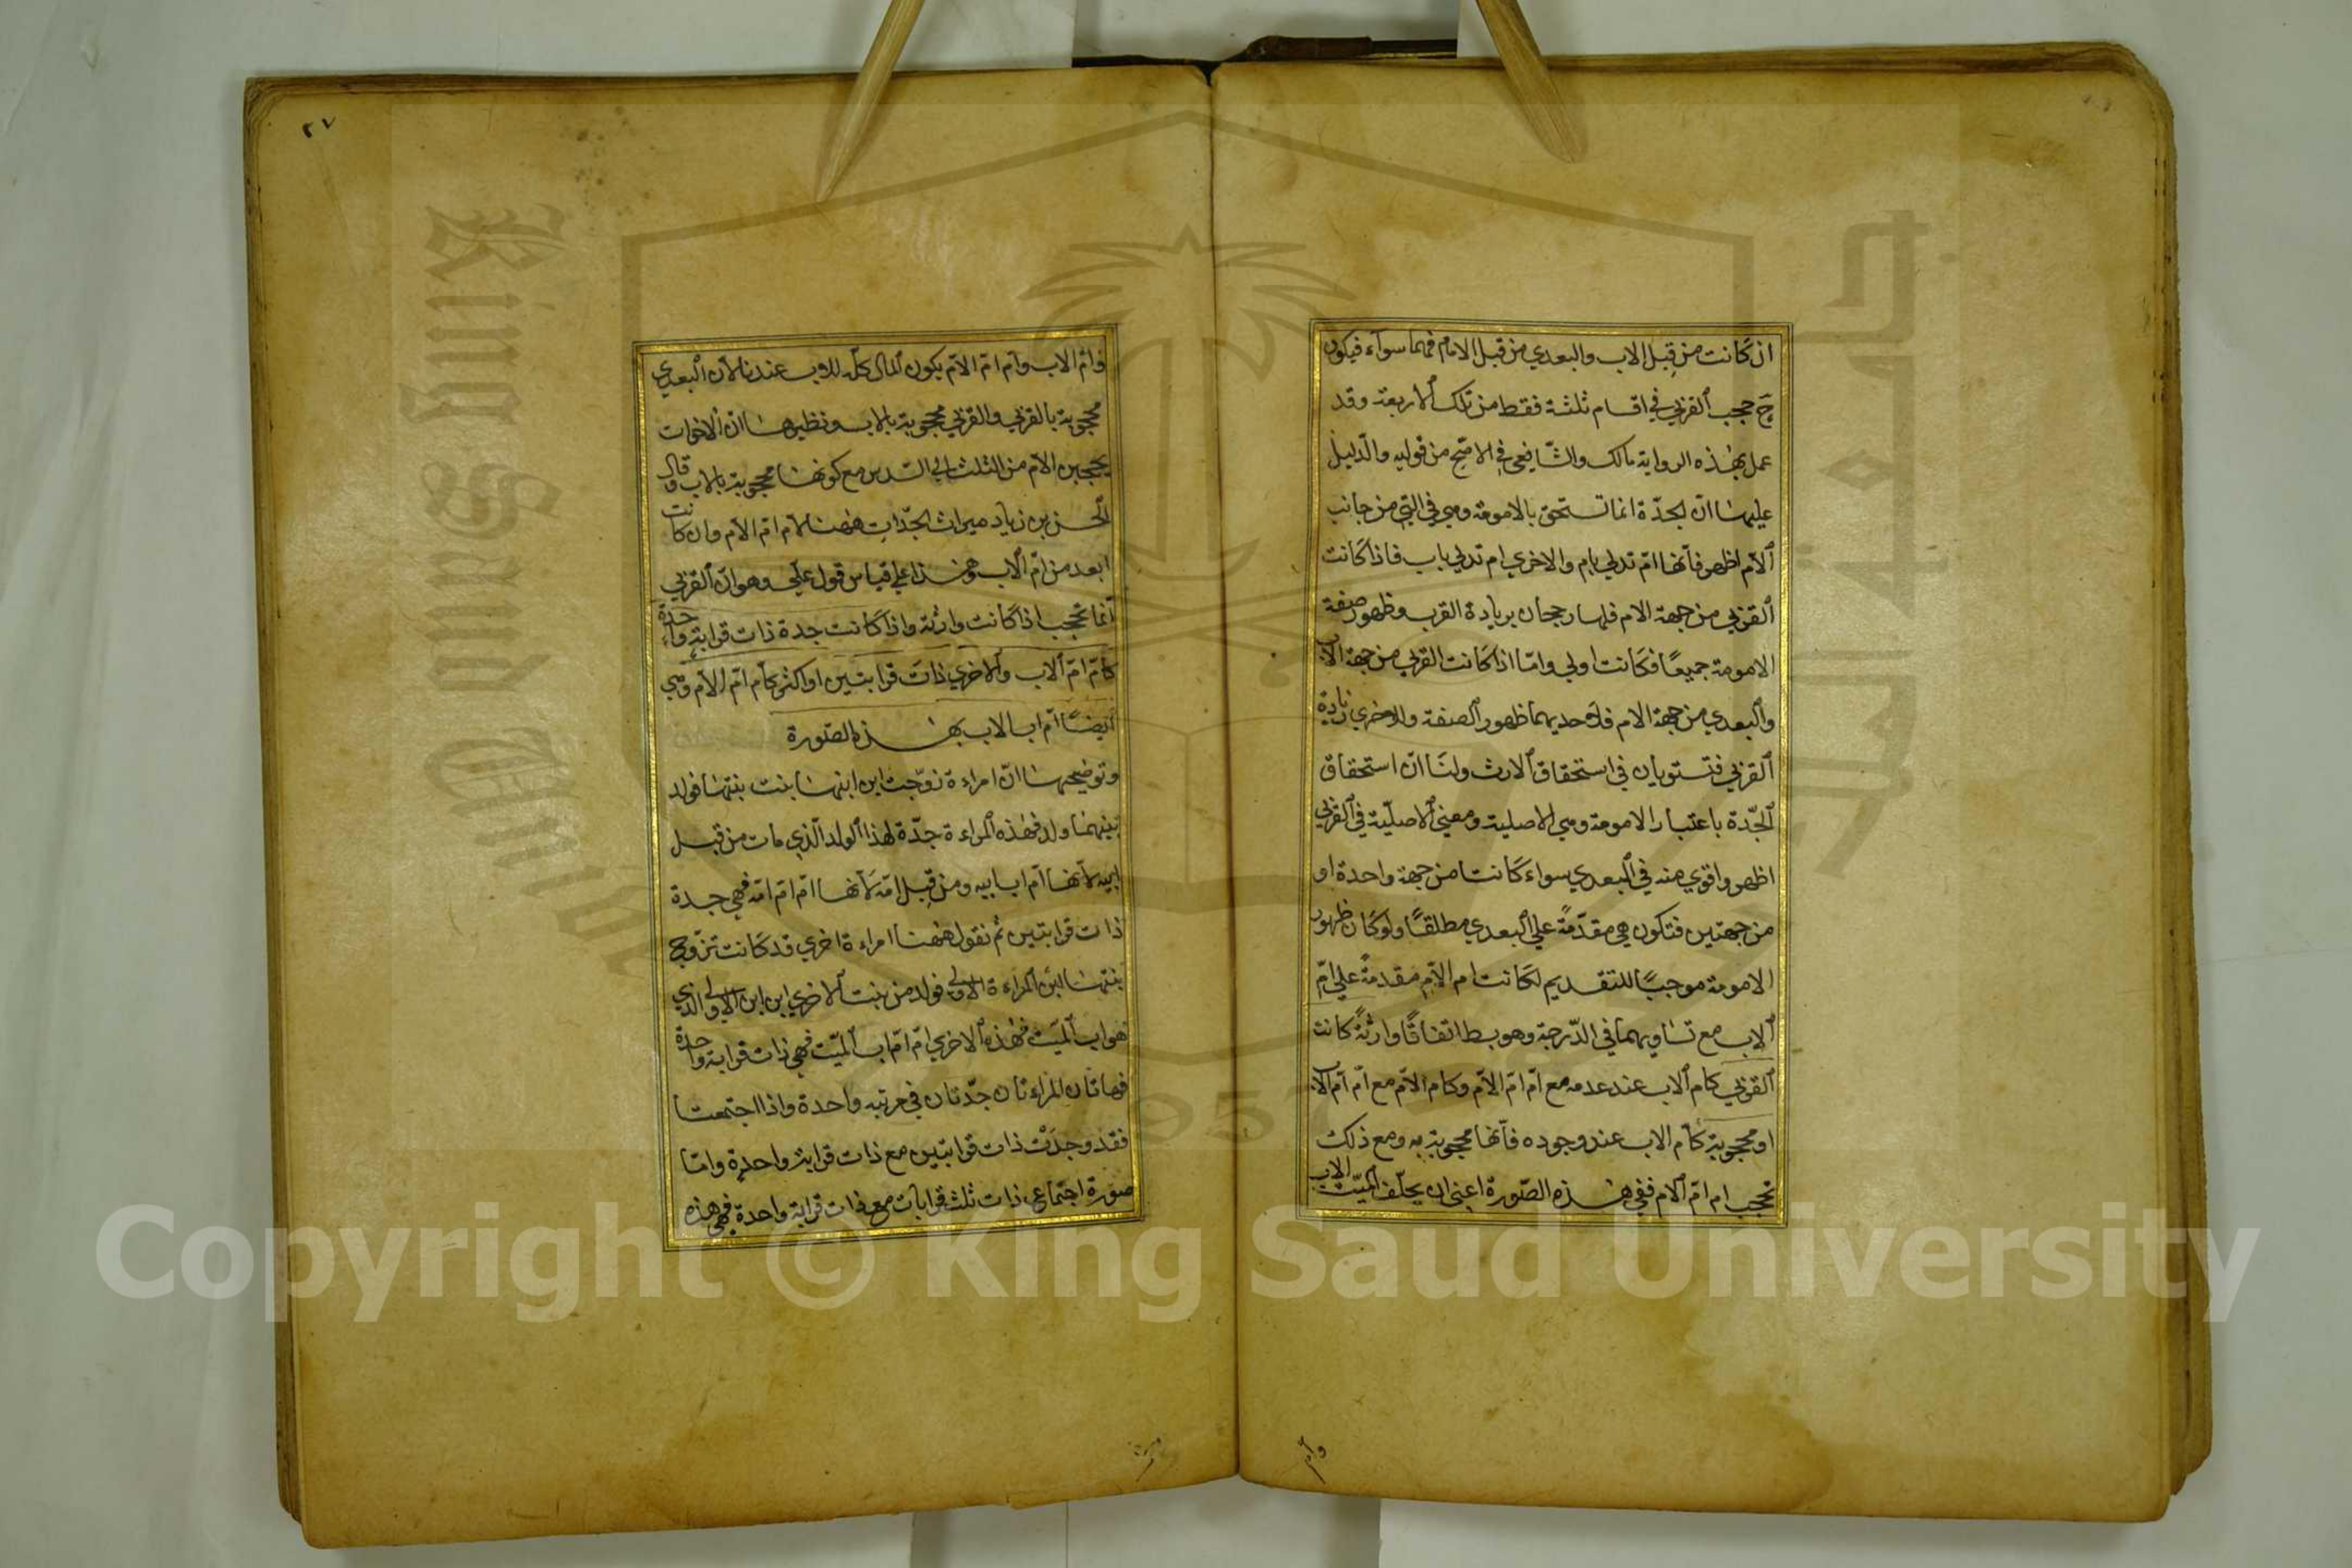 ان كانت من قبل الاب والبعدي من قبل الام فهما سوآء فيكون
ح حجب القربي في اقسام ثلثة فقط من تلك الاربعة وقد
عمل بهذه الرواية مالك والشافعي في الاصح من قوليه والدليل
عليها ان الجدة انما تستحق بالامومة وهي في التي من جانب
الام اظهر فانها ام تدلي بام والاخري ام تدلي باب فاذا كانت
القربي من جهة الام فلها رجحان بزيادة القرب وظهور صفة
الامومة جميعًا فكانت اولي واما اذا كانت القربي من جهة الاب
والبعدي من جهة الام فلاحديهما ظهور الصفة وللاخري زيادة
القربي فتستويان في استحقاق الارث ولنا ان استحقاق
الجدة باعتبار الامومة وهي الاصلية ومعني الاصلية في القربي
اظهر واقوي منه في البعدي سواء كانت من جهة واحدة او
من جهتين فتكون هي مقدمةً علي البعدي مطلقًا ولو كان ظهور
الامومة موجبًا للتقديم لكانت ام الام مقدمةً علي ام
الاب مع تساويهما في الدرجة وهو بط اتفاقًا وارثةً كانت
القربي كام الاب عند عدمه مع ام ام الام وكام الام مع ام ام الاب
او محجوبة كام الاب عند وجوده فانها محجوبة به ومع ذلك
تحجب ام ام الام ففي هذه الصورة اعني ان يخلف الميت الاب
وام
٢٧
وام الاب وام ام الام يكون المال كله للاب عندنا لان البعدي
محجوبة بالقربي والقربي محجوبة بالاب ونظيرها ان الاخوات
يحجبن الام من الثلث الي السدس مع كونها محجوبة بالاب وقال
الحسن بن زياد ميراث الجدات ههنا لام ام الام وان كانت
ابعد من ام الاب وهذا علي قياس قول علي وهو ان القربي
انما تحجب اذا كانت وارثة واذا كانت جدة ذات قرابة واحدة
كام ام الاب والاخري ذات قرابتين او اكثر كام ام الام وهي
ايضًا ام اب الاب بهذه الصورة
وتوضيحها ان امراءة زوجت ابن ابنها بنت بنتها فولد
بينهما ولد فهذه المراءة جدة لهذا الولد الذي مات من قبل
ابيه لانها ام اب ابيه ومن قبل امه لانها ام ام امه فهي جدة
ذات قرابتين ثم نقول ههنا امراءة اخري قد كانت تزوج
بنتها لابن المراءة الاولي فولد من بنت الاخري ابن ابن الاولي الذي
هو اب الميت فهذه الاخري ام ام اب الميت فهي ذات قرابة واحدة
فهاتان المراءتان جدتان في مرتبه واحدة واذا اجتمعتا
فقد وجدت ذات قرابتين مع ذات قرابة واحدة واما
صورة اجتماع ذات ثلث قرابات مع ذات قرابة واحدة فهي هذه
King Saud University
1957
Copyright © King Saud University